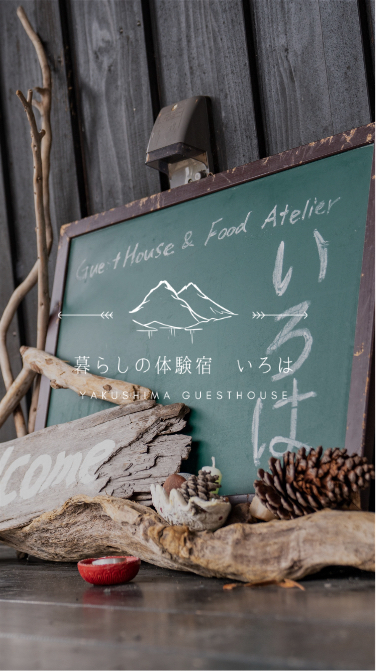 GuestHouse & Food Atelier
いろは
暮らしの体験宿　いろは
YAKUSHIMA GUESTHOUSE
lcome